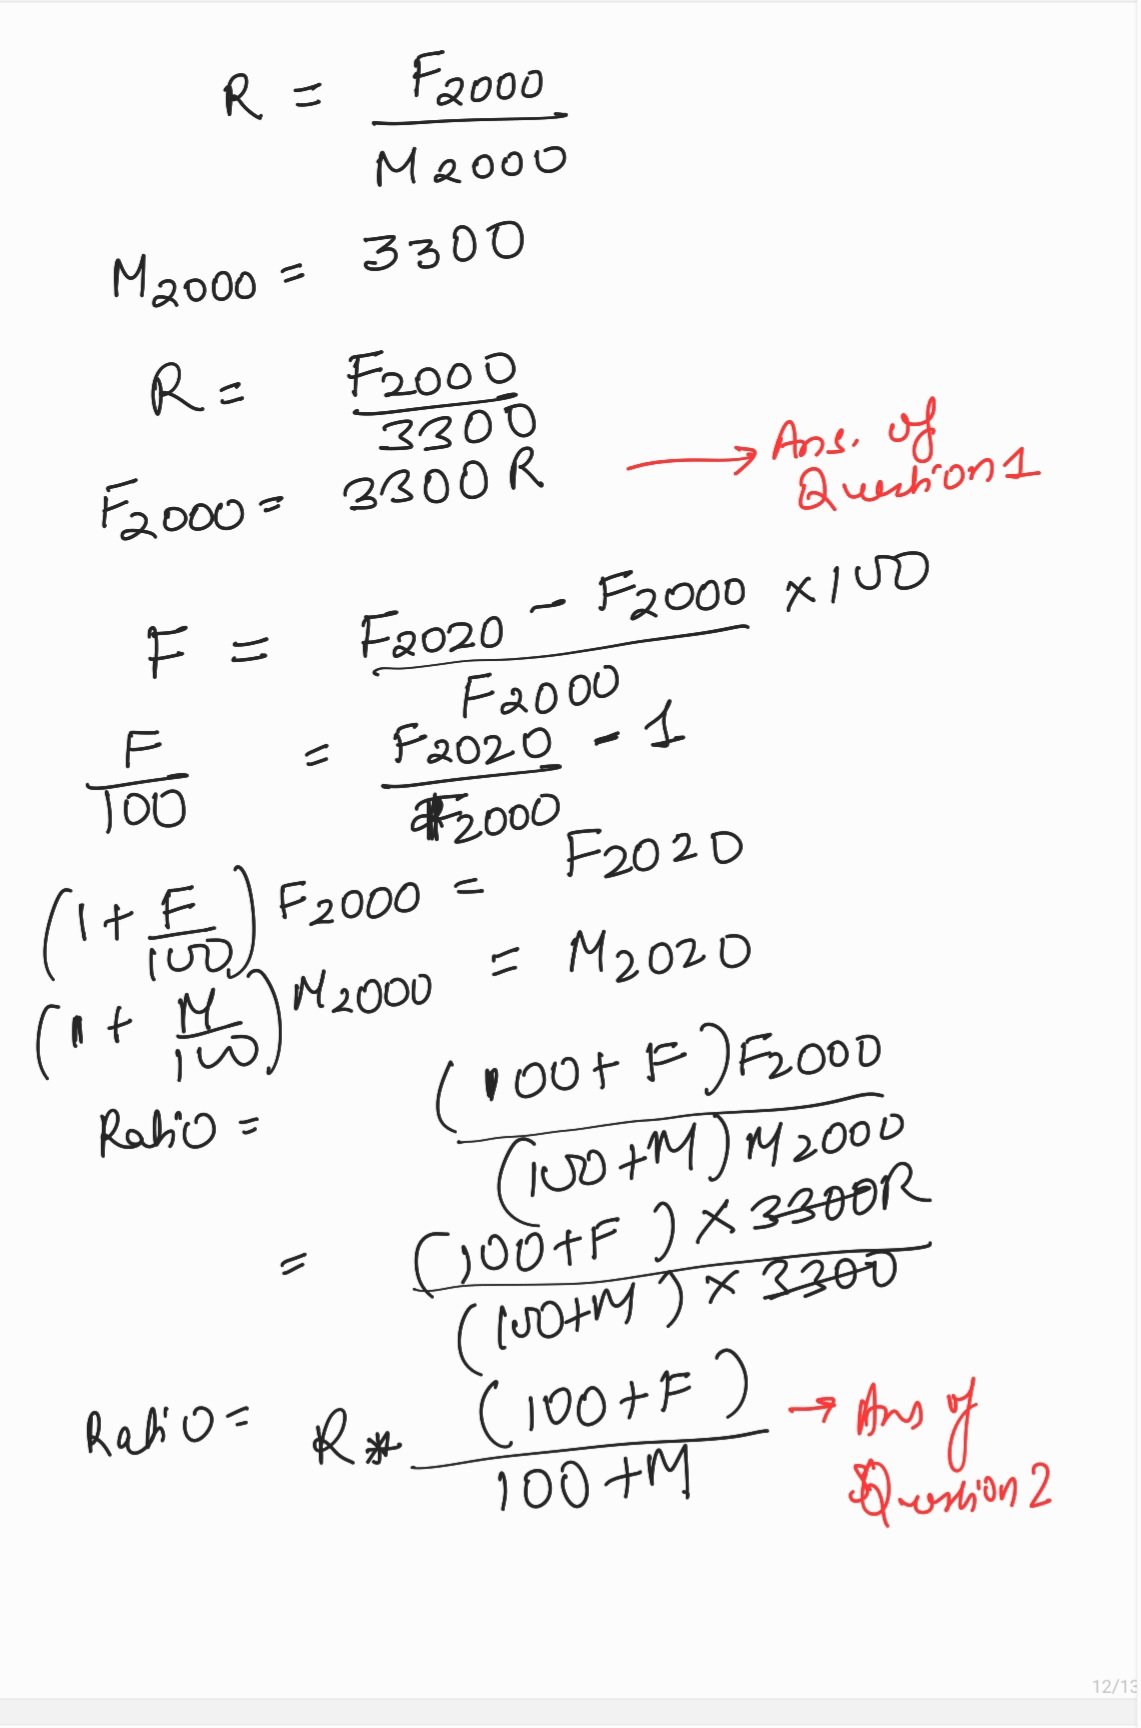 R = F2000 / M2000
M2000 = 3300
R = F2000 / 3300
F2000 = 3300 R → Ans. of Question 1
F = F2020 - F2000 / F2000 × 100
F / 100 = F2020 / F2000 - 1
(1 + F / 100) F2000 = F2020
(1 + M / 100) M2000 = M2020
Ratio = (100 + F) F2000 / (100 + M) M2000
= (100 + F) × 3300R / (100 + M) × 3300
Ratio = R * (100 + F) / 100 + M → Ans of Question 2
12/13